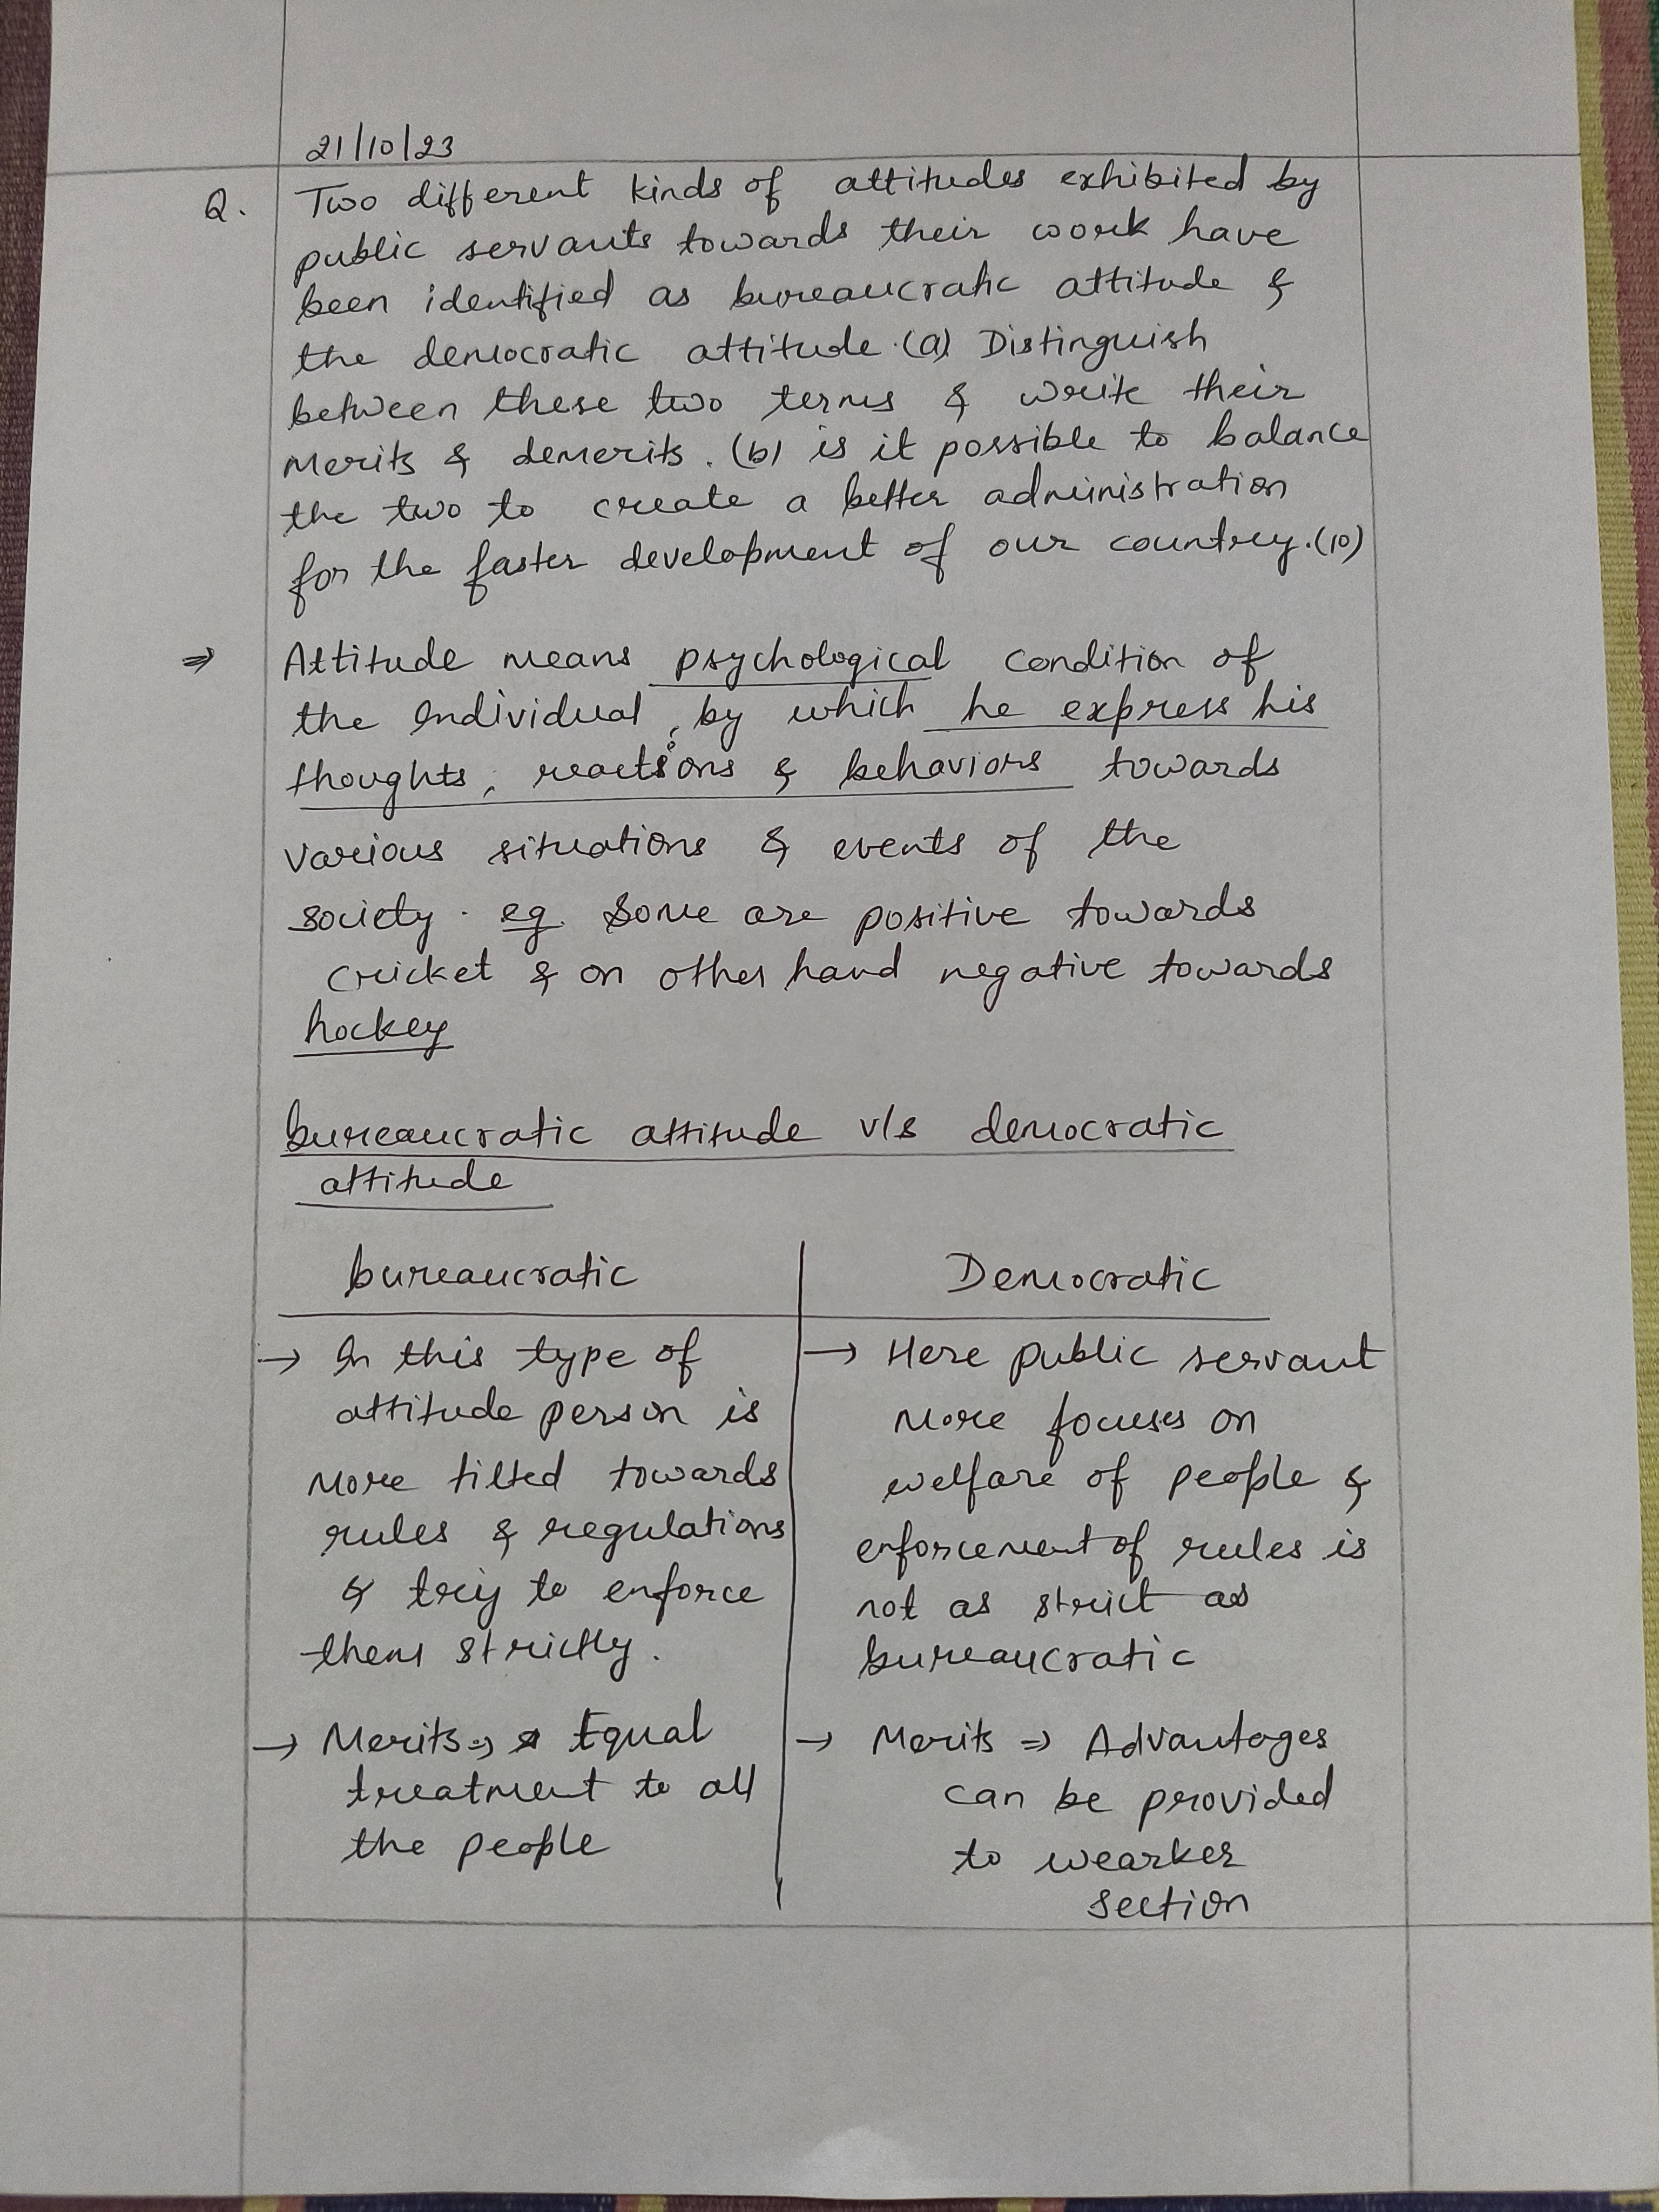 21/10/23
Q. Two different kinds of attitudes exhibited by
public servants towards their work have
been identified as bureaucratic attitude &
the democratic attitude. (a) Distinguish
between these two terms & write their
merits & demerits. (b) is it possible to balance
the two to create a better administration
for the faster development of our country. (10)
⇒ Attitude means psychological condition of
the Individual, by which he express his
thoughts, reactions & behaviors towards
various situations & events of the
society. eg. Some are positive towards
cricket & on other hand negative towards
hockey
bureaucratic attitude v/s democratic
attitude
bureaucratic
→ In this type of
attitude person is
more tilted towards
rules & regulations
& try to enforce
them strictly.
→ Merits ⇒ Equal
treatment to all
the people
Democratic
→ Here public servant
more focuses on
welfare of people &
enforcement of rules is
not as strict as
bureaucratic
→ Merits ⇒ Advantages
can be provided
to wearker
section